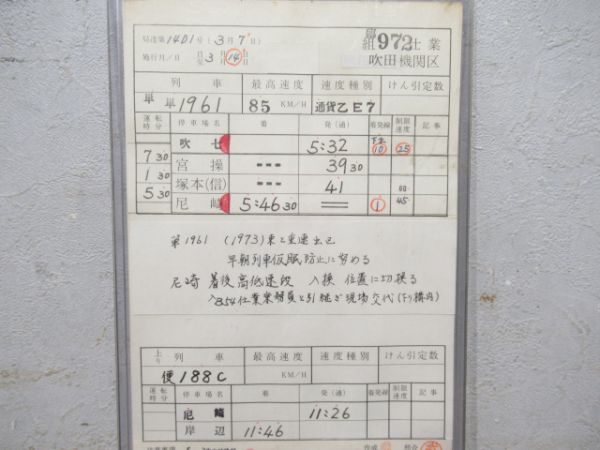 局達第1401号(3月7日)
組972仕業
施行月/日 自3月14日 吹田機関区
列車 最高速度 速度種別 けん引定数
単 単1961 85KM/H 通貨乙E7
運転時分 停車場名 着 発(通) 着発線 制限速度 記事
吹 5:32 下 10 25
7 30 宮操 --- 39 30
1 30 塚本(信) --- 41 60
5 30 尼崎 5:46 30 == 1 45
第1961 (1973)
早朝列車仮眠防止に努める
尼崎 着後高低速段 入換 位置に切換る
入854仕業乗務員と引継ぎ現場交代(下り構内)
上り 列車 最高速度 速度種別 けん引定数
便188C KM/H
運転時分 停車場名 着 発(通) 着発線 制限速度 記事
尼崎 11:26
岸辺 11:46